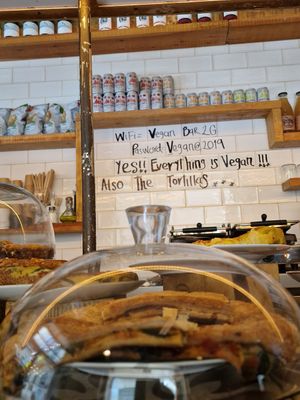 WiFi = Vegan Bar 2G
Password: Vegan@2019
Yes!! Everything is Vegan !!!
Also The Tortillas